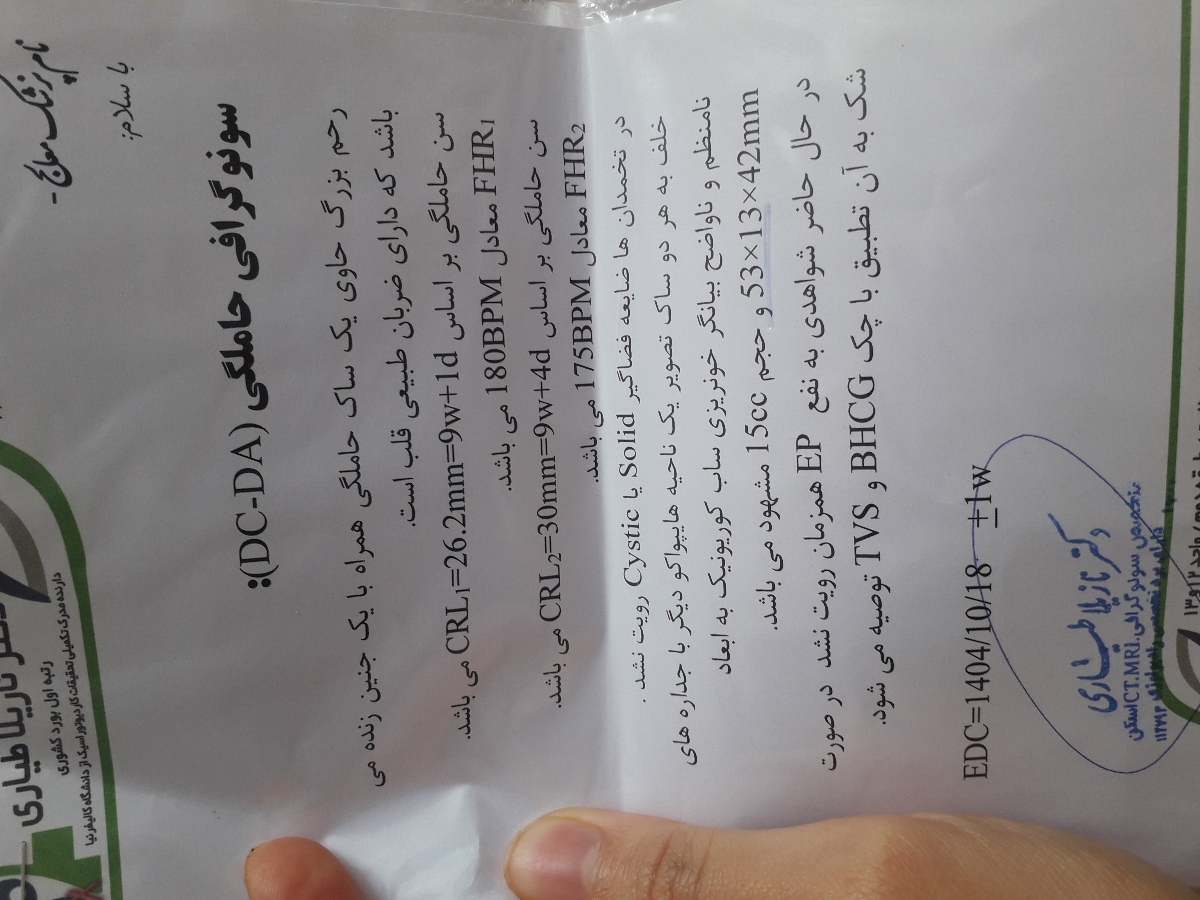 دکتر نازیلا طیاری
رتبه اول بورد کشوری
دارنده مدرک تکمیلی تحقیقات کاردیوتوراسیک از دانشگاه کالیفرنیا
نام پزشک معالج -
با سلام:
سونوگرافی حاملگی (DC-DA):
رحم بزرگ حاوی یک ساک حاملگی همراه با یک جنین زنده می
باشد که دارای ضربان طبیعی قلب است.
سن حاملگی بر اساس CRL₁=26.2mm=9w+1d می باشد.
FHR₁ معادل 180BPM می باشد.
سن حاملگی بر اساس CRL₂=30mm=9w+4d می باشد.
FHR₂ معادل 175BPM می باشد.
در تخمدان ها ضایعه فضاگیر Solid یا Cystic رویت نشد .
خلف به هر دو ساک تصویر یک ناحیه هایپواکو دیگر با جداره های
نامنظم و ناواضح بیانگر خونریزی ساب کوریونیک به ابعاد
53×13×42mm و حجم 15cc مشهود می باشد.
در حال حاضر شواهدی به نفع EP همزمان رویت نشد در صورت
شک به آن تطبیق با چک BHCG و TVS توصیه می شود.
EDC=1404/10/18 ±1w
دکتر نازیلا طیاری
متخصص سونوگرافی.CT.MRIاسکن